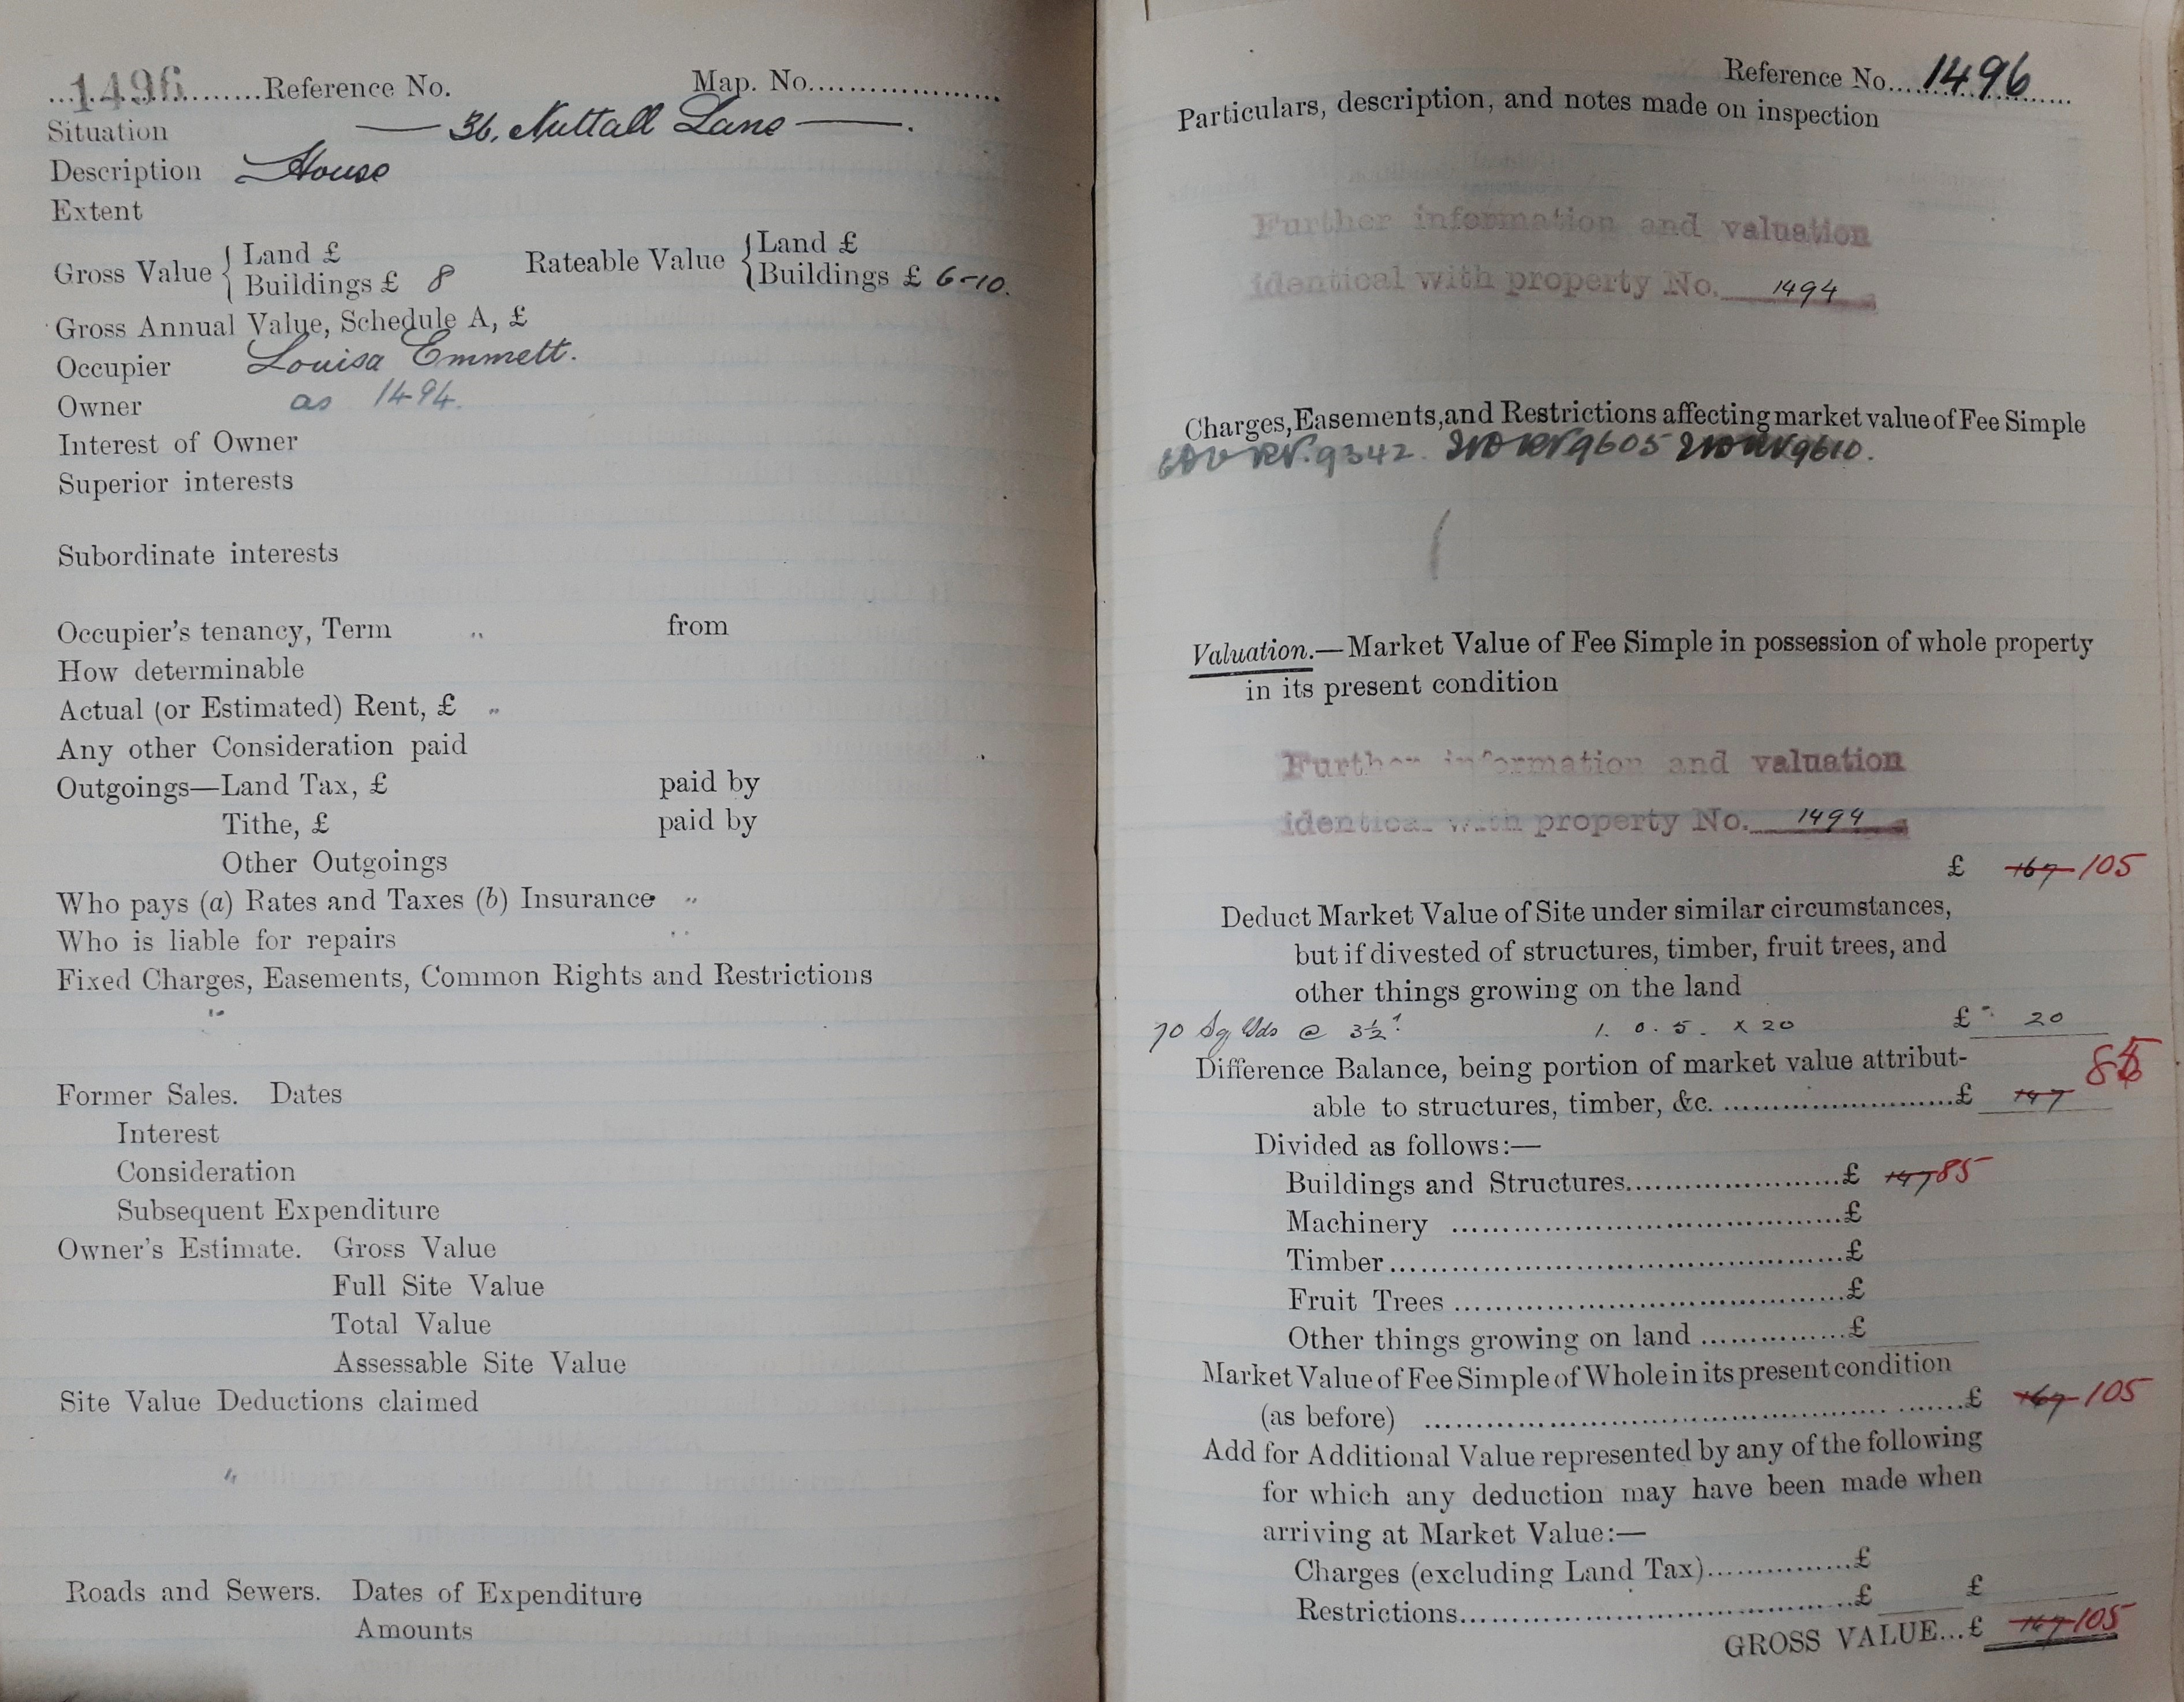 1496 Reference No. Map. No.
Situation — 36, Nuttall Lane —.
Description House
Extent
Gross Value { Land £
Buildings £ 8
Rateable Value { Land £
Buildings £ 6-10.
Gross Annual Value, Schedule A, £
Occupier Louisa Emmett.
Owner as 1494.
Interest of Owner
Superior interests
Subordinate interests
Occupier's tenancy, Term " from
How determinable
Actual (or Estimated) Rent, £ "
Any other Consideration paid
Outgoings—Land Tax, £ paid by
Tithe, £ paid by
Other Outgoings
Who pays (a) Rates and Taxes (b) Insurance "
Who is liable for repairs "
Fixed Charges, Easements, Common Rights and Restrictions
"
Former Sales. Dates
Interest
Consideration
Subsequent Expenditure
Owner's Estimate. Gross Value
Full Site Value
Total Value
Assessable Site Value
Site Value Deductions claimed
"
Roads and Sewers. Dates of Expenditure
Amounts
Reference No. 1496
Particulars, description, and notes made on inspection
Further information and valuation
identical with property No. 1494
Charges, Easements, and Restrictions affecting market value of Fee Simple
9342. 9605 9610.
Valuation.—Market Value of Fee Simple in possession of whole property
in its present condition
Further information and valuation
identical with property No. 1494
£ 167 105
Deduct Market Value of Site under similar circumstances,
but if divested of structures, timber, fruit trees, and
other things growing on the land
70 Sq Yds @ 3½ 1. 0. 5. x 20 £ 20
Difference Balance, being portion of market value attribut-
able to structures, timber, &c. £ 147 85
Divided as follows:—
Buildings and Structures £ 147 85
Machinery £
Timber £
Fruit Trees £
Other things growing on land £
Market Value of Fee Simple of Whole in its present condition
(as before) £ 167 105
Add for Additional Value represented by any of the following
for which any deduction may have been made when
arriving at Market Value:—
Charges (excluding Land Tax) £
Restrictions £ £
GROSS VALUE...£ 167 105